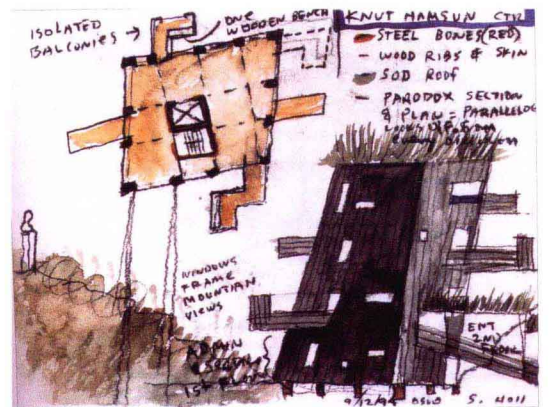 ISOLATED
BALCONIES →
ONE
WOODEN BENCH
KNUT HAMSUN CTR
STEEL BONES (RED)
– WOOD RIBS & SKIN
SOD ROOF
– PARODOX SECTION
& PLAN = PARALLELOG
WINDOWS
FRAME
MOUNTIAN
VIEWS
ADMIN
1ST FLOOR
ENT
2ND
9/12/94 OSLO S. HOLL